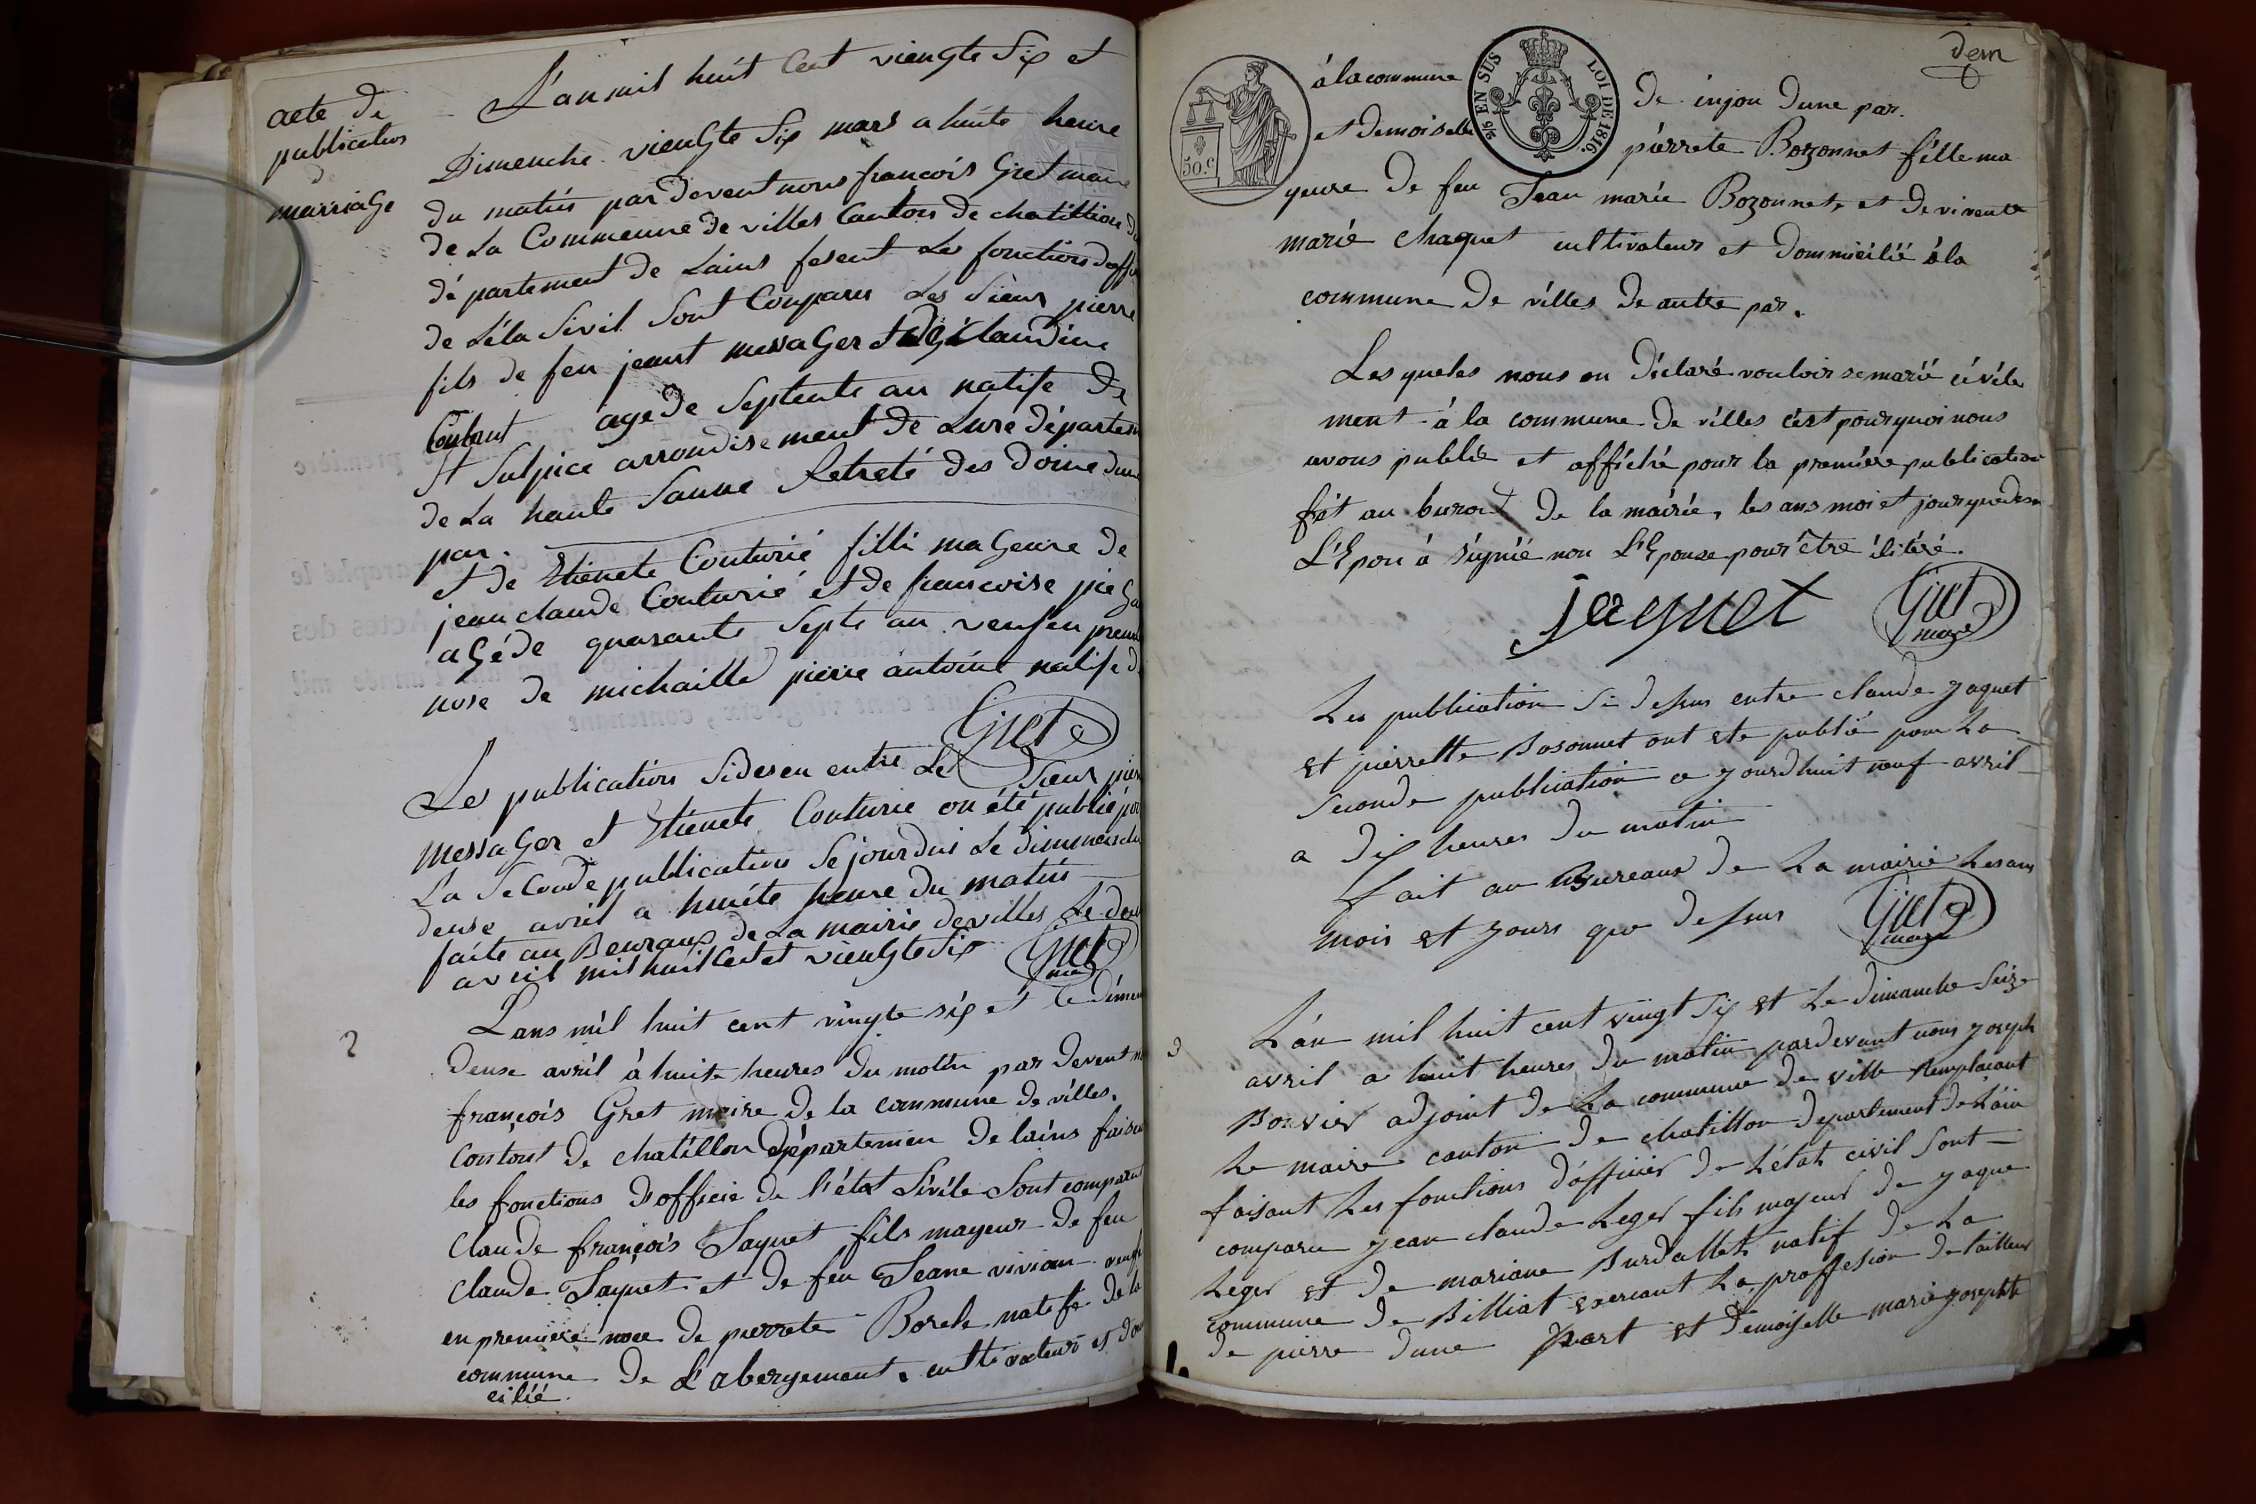 acte de
publication
marriage
L'an mil huit Cent viengte Six et
Dimenche viengte Six mars a huite heure
du matin par devent nous francois Gret maire
de La Commeune de villes Canton de chatillion
département de Lains fesent les fonction d'offi
de L'éta Sivil Sont Comparu Les Sieur pierre
fils de feu jeant messaGer et de Claudine
Coutant age de Septente an natife de
St Sulpice arrondisement de Lure départem
de La haute Sanne Retreté des doine dune
par.
et de Etienete Couturié filli maGeure de
jean claude Couturié et de francoise
aGéde quarante Septe an
nose de michaille pierre antoine natife d
Gret
Les publication Sideseu entre Le Sieur pier
messaGer et Etienete Couturie on été publié por
La Seconde publication Se jourdui Le dimmenche
deuse avril a huiéte heure du matin
faite au Beuraux de La mairie de villes Le deu
avril mil huit Cent et viengte Six Gret
maire
2
L'ans mil huit cent vingte six et le dimen
deuse avril à huite heures du matin par devent n
françois Gret maire de la commune de villes.
Contont de chatillon département de lains faisan
les fonctions d'officie de l'état Sivile Sont comparut
Claude françois Jaquet fils mayeur de feu
Claude Jaquet et de feu Jeane vivian
en première noce de pierrete Borele natife de la
commune de L'abergement. cultivateur et dom
cilié.
dem
50.c
2/6 EN SUS
LOI DE 1816.
à la commune de injou dune par.
et demoiselle pierrete Bozonnet fille ma
yeure de feu Jean marie Bozonnet, et de vivente
marie Chaquet cultivateur et dommicilié à la
commune de villes de autre par.
Les queles nous on déclaré vouloir se marié civile
ment à la commune de villes c'est pourquoi nous
avous publié et affiché pour la première publication
fet au buront de la mairie, les ans moi et jour que desu
L'Epou à signié non L'Epouse pour être élitéré.
jaquet Gret
maire
Les publication Si dessus entre claude yaquet
et pierrette Bosonnet ont ete publié pour La
Seconde publication ce yourdhuit neuf avril
a dix heures du matin
fait au Bureaux de La mairie Les ans
mois et yours que dessus Gret
maire
3
L'an mil huit cent vingt Six et Le dimanche Seize
avril a huit heures du matin pardevant nous yoseph
Bouvier adjoint de La commune de ville Remplacant
Le maire canton de chatillon departement de L'ain
faisant Les fonctions d'officier de L'état civil Sont
comparu yean claude Leger fils majeur de yaque
Leger et de mariane Burdallet natif de La
commune de Billiat exercant La proffesion de tailleur
de pierre dune part et demoiselle marie yosephte